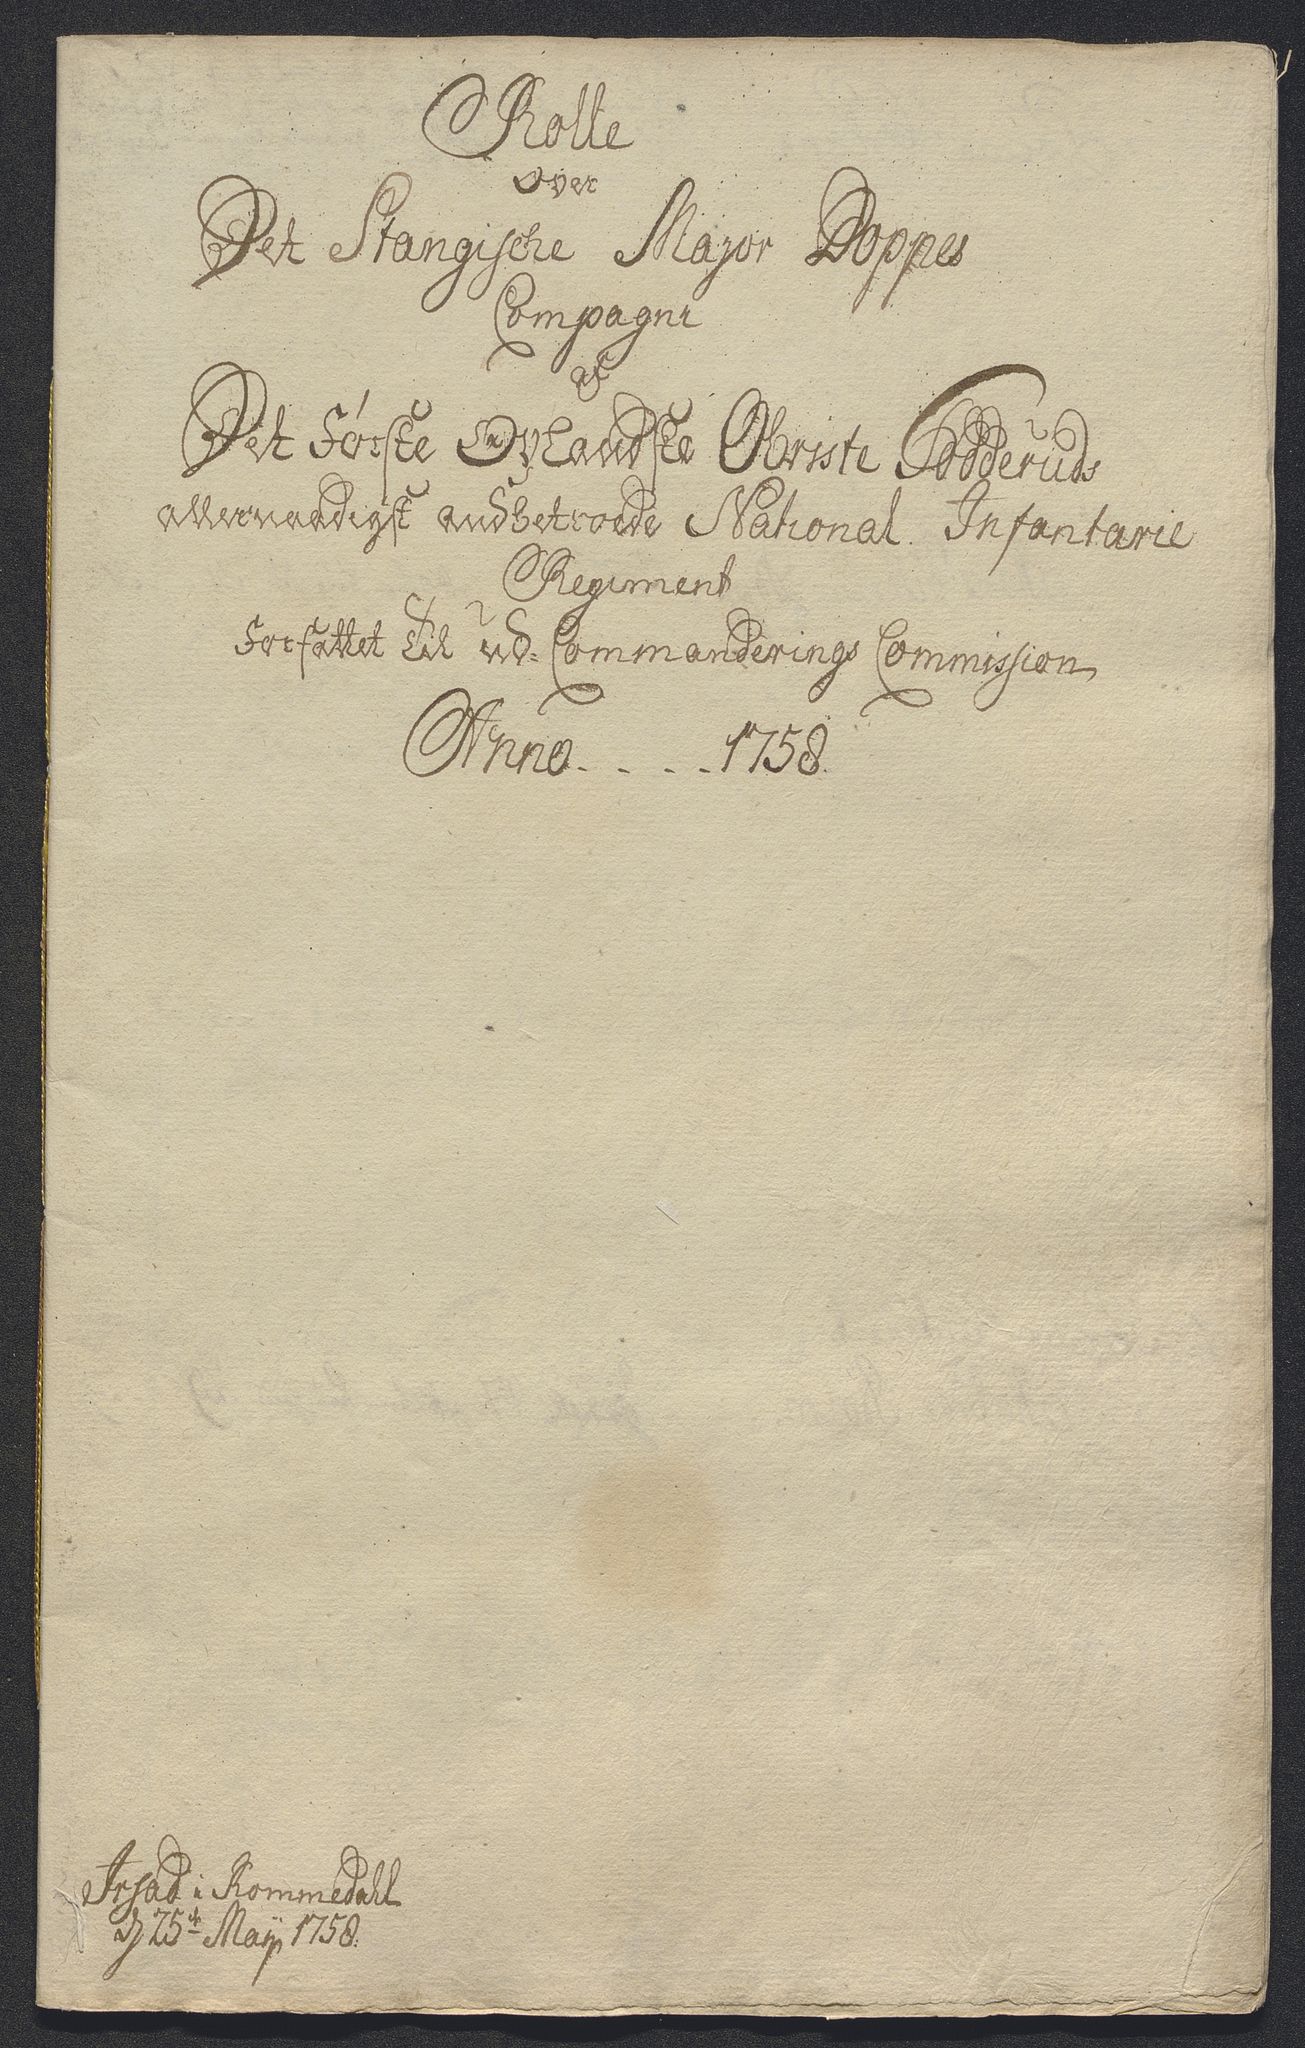 Rolle
over
Det Stangische Major Doppes
Compagni
af
Det Første Oplandske Obriste Sødderuds
allernaadigst andbetroede National Infantarie
Regiment
Forfattet til ud-Commanderings Commission
Anno . . . . 1758.
i Rommedahl
25de Maij 1758.